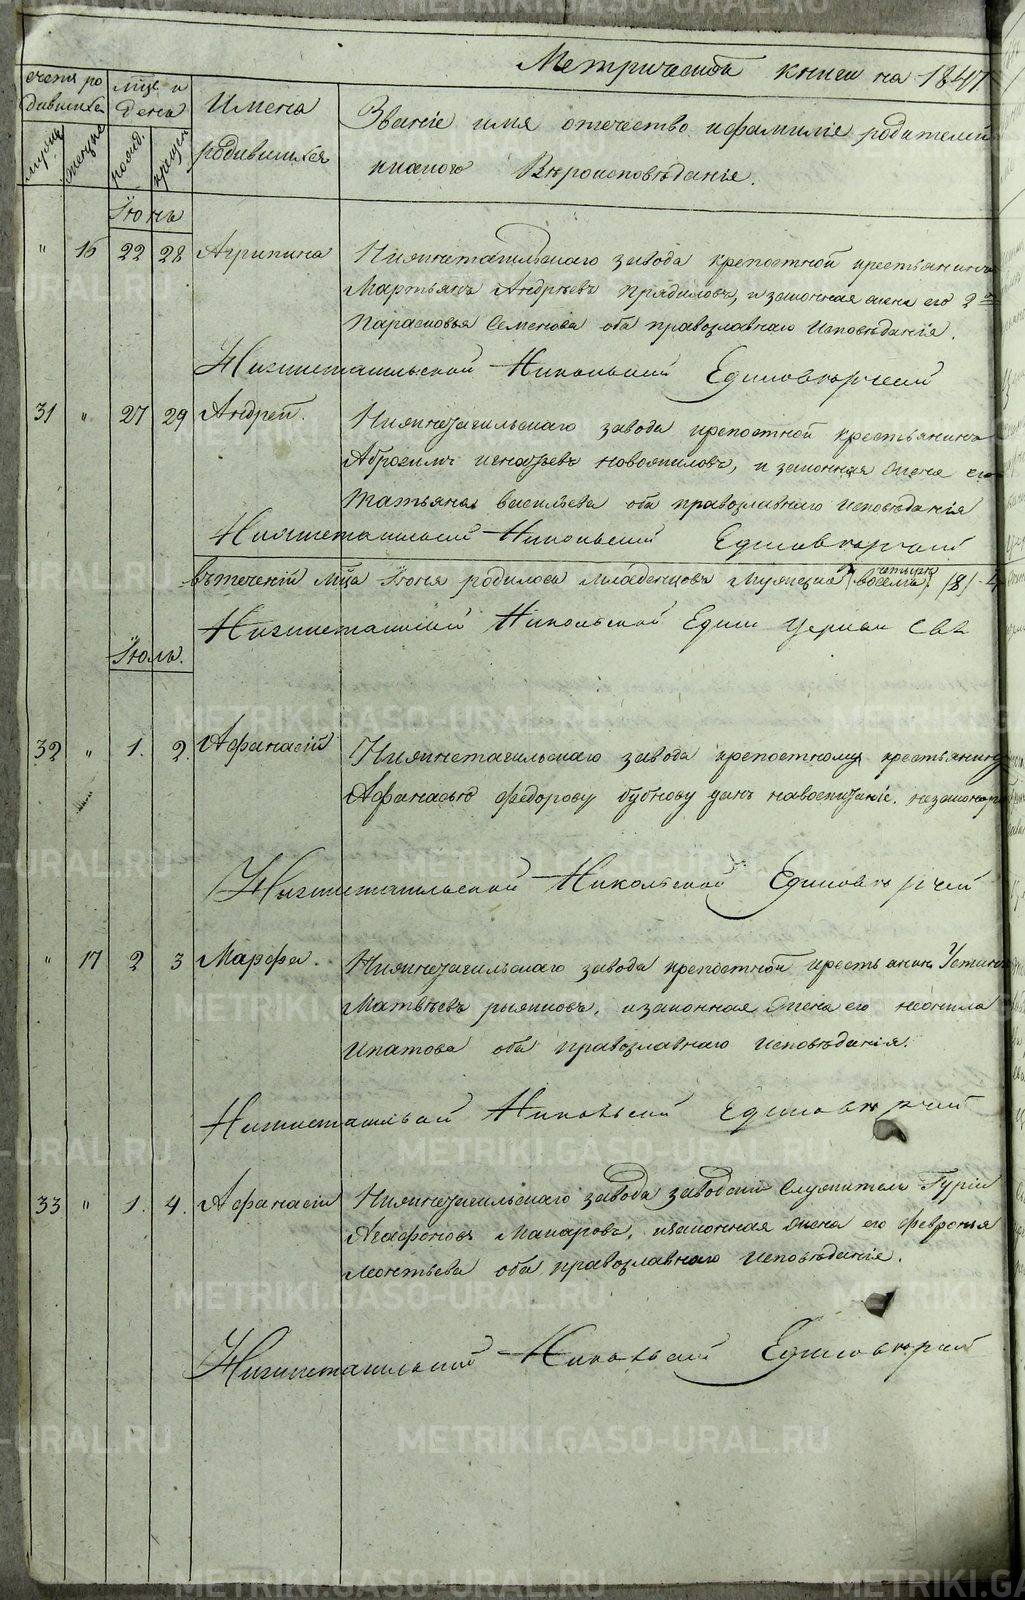 Метрической книги на 1841
Счетъ родившихся
мужск женска
Мцъ и День
рожд. крещен
Имена родившихся
Званіе имя отечество и фамилія родителей
и какого Вѣроисповѣданія.
Іюнь
" 16 22 28 Агрипина
Нижнетагильскаго завода крепостной крестьянинъ
Мартьянъ Андрѣевъ Прядиловъ, и законная жена его 2я
Парасковья Семенова оба православнаго Исповѣданія.
Нижнетагильской Никольской Единовѣрчей
31 " 27 29 Андрей.
Нижнетагильскаго завода крепостной крестьянинъ
законная жена его
Татьяна Васильева оба православнаго исповѣданія
Нижнетагильской Никольской Единовѣрчей
Втеченій мца Іюнья родилося младенцовъ мужеска
четыре
восемь (8)
Нижнетагильской Никольской Един Церкви Свя
Іюль.
32 " 1. 2. Афанасій
Нижнетагильскаго завода крепостному крестьянину
Афанасью Федорову Бубнову данъ навоспитаніе.
Нижнетагильской Никольской Единовѣрчей
" 17 2 3 Марфа.
Нижнетагильскаго завода крепостной крестьянинъ Устинъ
Матвѣевъ рыжковъ, и законная жена его неонила
Ипатова оба православнаго исповѣданія.
Нижнетагильской Никольской Единовѣрчей
33 " 1. 4. Афанасій
Нижнетагильскаго завода заводский Служитель Гурій
Агафоновъ Макаровъ, и законная жена его февронья
Леонтьева оба православнаго исповѣданія.
Нижнетагильский Никольский Единовѣрчей
METRIKI.GASO-URAL.RU